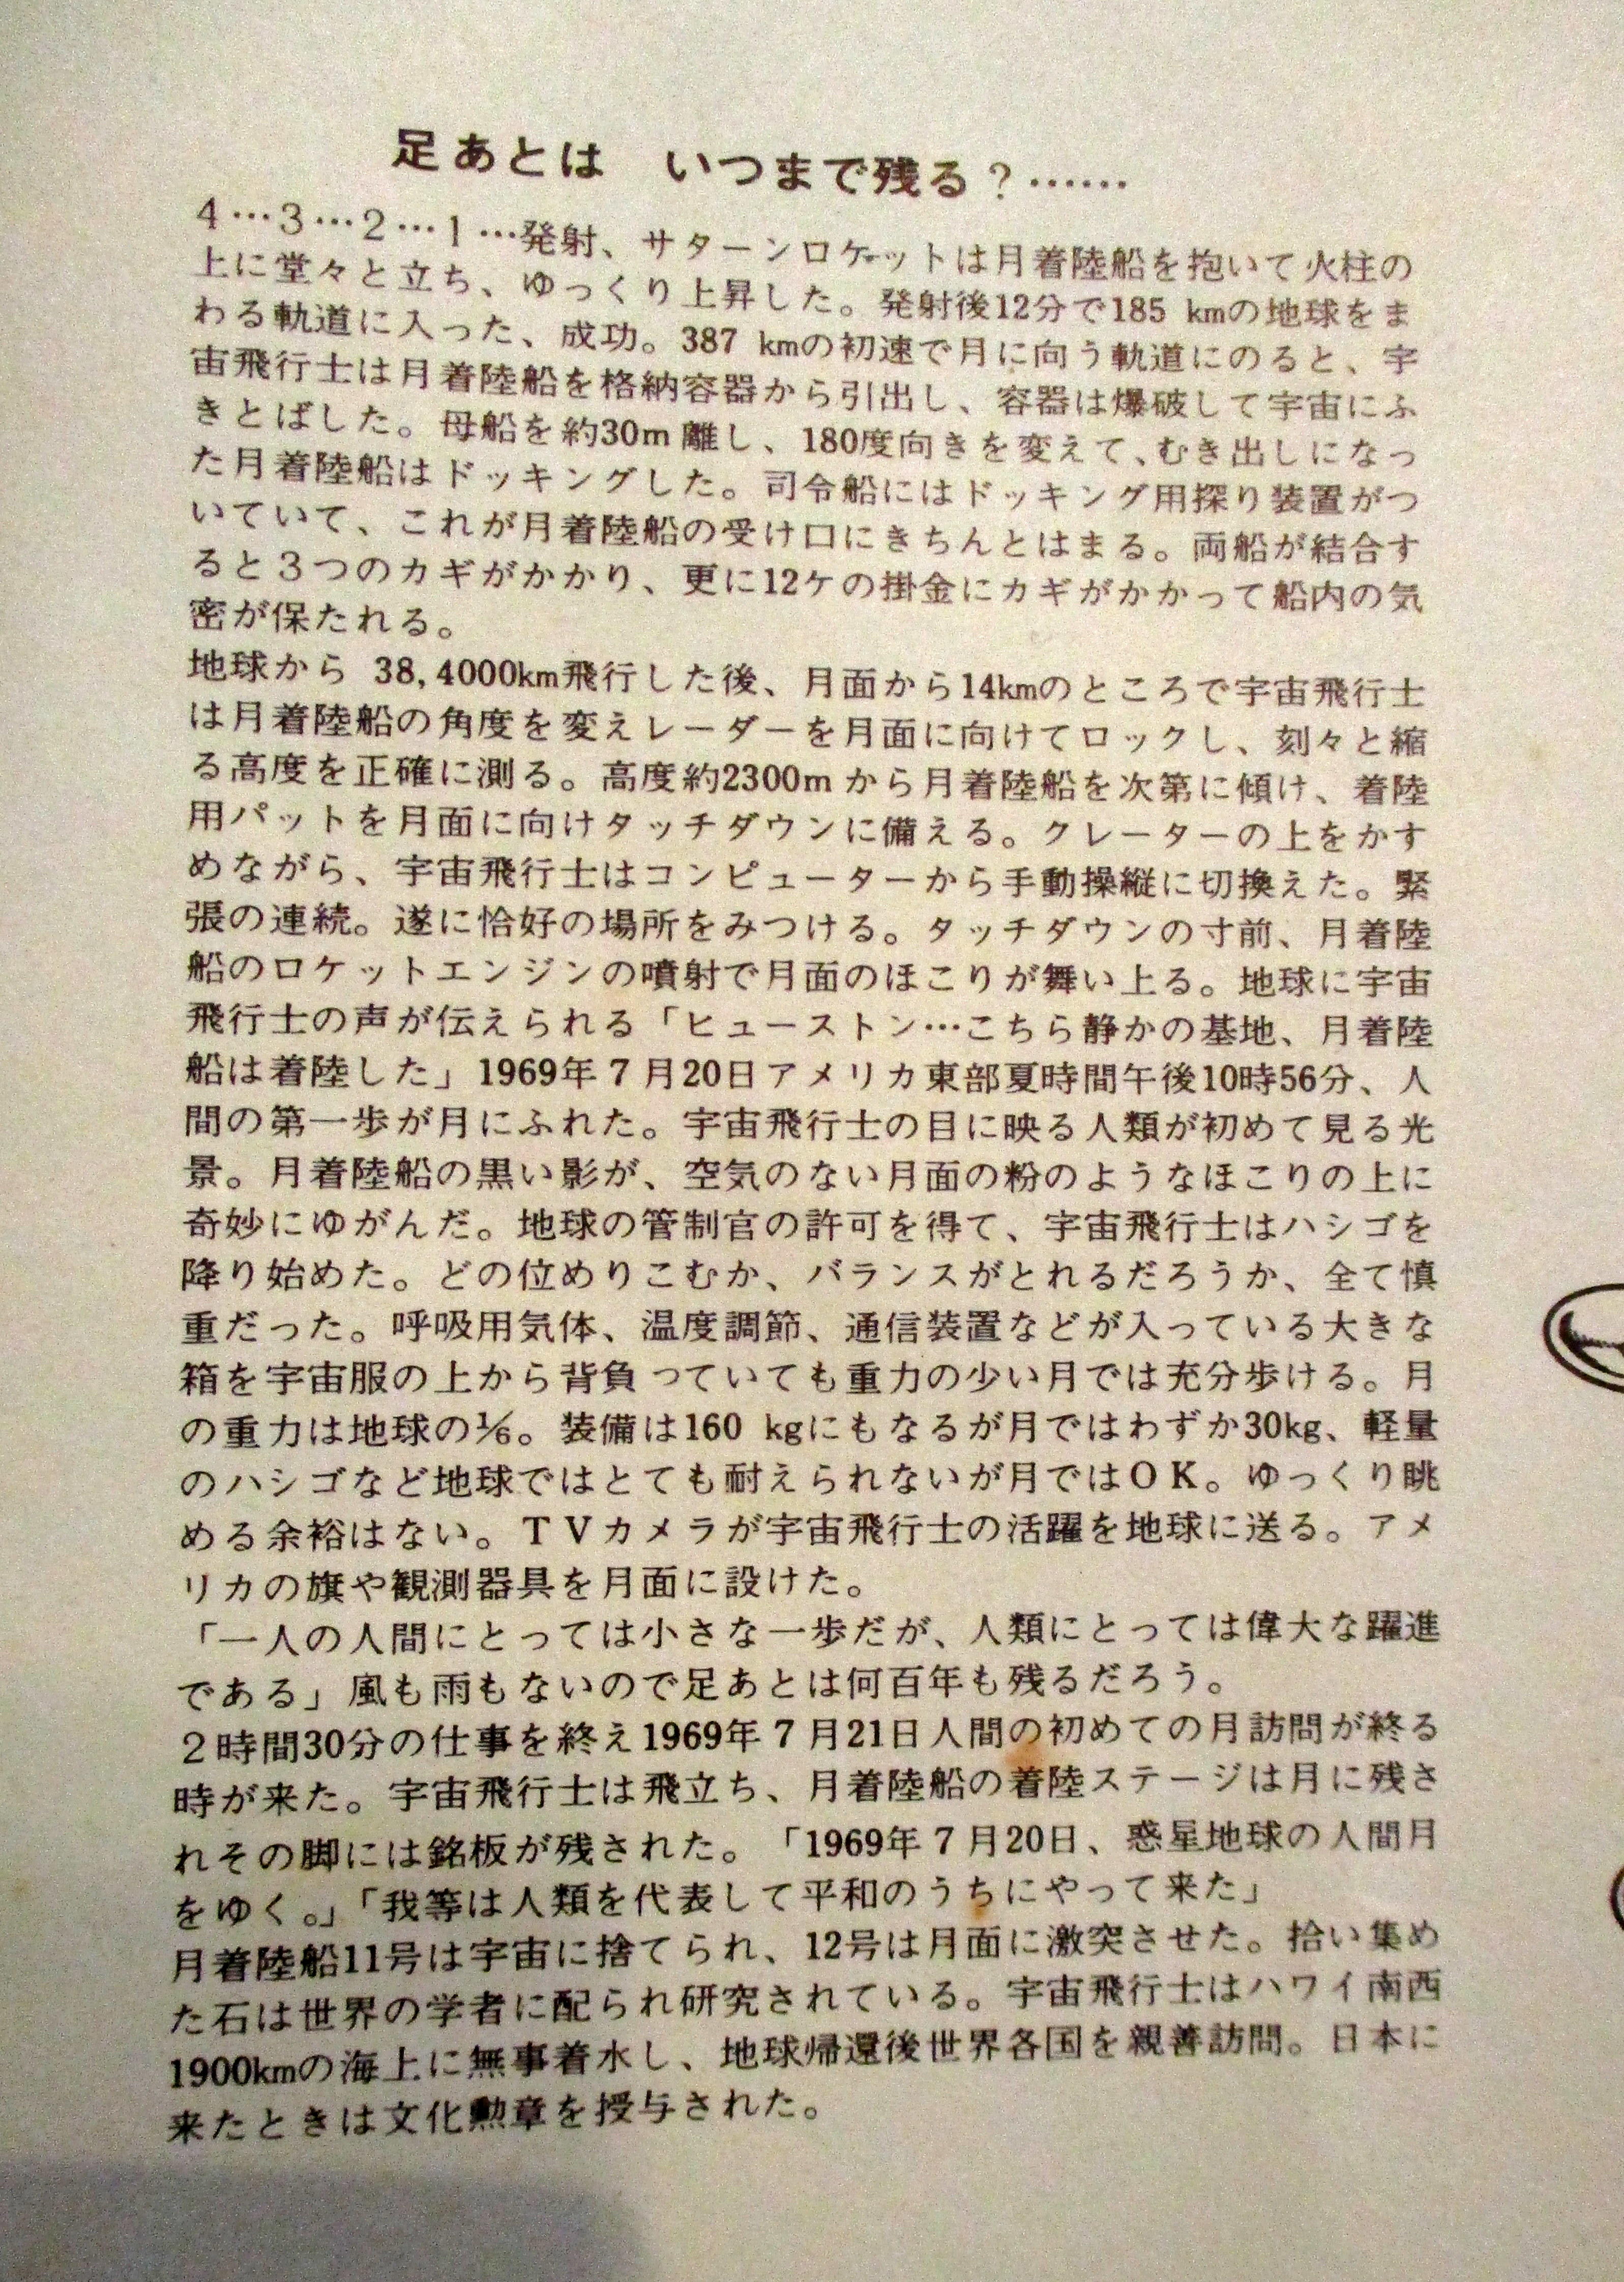 足あとは　いつまで残る？……
４…３…２…１…発射、サターンロケットは月着陸船を抱いて火柱の
上に堂々と立ち、ゆっくり上昇した。発射後12分で185 kmの地球をま
わる軌道に入った、成功。387 kmの初速で月に向う軌道にのると、宇
宙飛行士は月着陸船を格納容器から引出し、容器は爆破して宇宙にふ
きとばした。母船を約30m 離し、180度向きを変えて、むき出しになっ
た月着陸船はドッキングした。司令船にはドッキング用探り装置がつ
いていて、これが月着陸船の受け口にきちんとはまる。両船が結合す
ると３つのカギがかかり、更に12ケの掛金にカギがかかって船内の気
密が保たれる。
地球から 38,4000km飛行した後、月面から14kmのところで宇宙飛行士
は月着陸船の角度を変えレーダーを月面に向けてロックし、刻々と縮
る高度を正確に測る。高度約2300m から月着陸船を次第に傾け、着陸
用パットを月面に向けタッチダウンに備える。クレーターの上をかす
めながら、宇宙飛行士はコンピューターから手動操縦に切換えた。緊
張の連続。遂に恰好の場所をみつける。タッチダウンの寸前、月着陸
船のロケットエンジンの噴射で月面のほこりが舞い上る。地球に宇宙
飛行士の声が伝えられる「ヒューストン…こちら静かの基地、月着陸
船は着陸した」1969年７月20日アメリカ東部夏時間午後10時56分、人
間の第一歩が月にふれた。宇宙飛行士の目に映る人類が初めて見る光
景。月着陸船の黒い影が、空気のない月面の粉のようなほこりの上に
奇妙にゆがんだ。地球の管制官の許可を得て、宇宙飛行士はハシゴを
降り始めた。どの位めりこむか、バランスがとれるだろうか、全て慎
重だった。呼吸用気体、温度調節、通信装置などが入っている大きな
箱を宇宙服の上から背負っていても重力の少い月では充分歩ける。月
の重力は地球の⅙。装備は160 kgにもなるが月ではわずか30kg、軽量
のハシゴなど地球ではとても耐えられないが月ではＯＫ。ゆっくり眺
める余裕はない。ＴＶカメラが宇宙飛行士の活躍を地球に送る。アメ
リカの旗や観測器具を月面に設けた。
「一人の人間にとっては小さな一歩だが、人類にとっては偉大な躍進
である」風も雨もないので足あとは何百年も残るだろう。
２時間30分の仕事を終え1969年７月21日人間の初めての月訪問が終る
時が来た。宇宙飛行士は飛立ち、月着陸船の着陸ステージは月に残さ
れその脚には銘板が残された。「1969年７月20日、惑星地球の人間月
をゆく。」「我等は人類を代表して平和のうちにやって来た」
月着陸船11号は宇宙に捨てられ、12号は月面に激突させた。拾い集め
た石は世界の学者に配られ研究されている。宇宙飛行士はハワイ南西
1900kmの海上に無事着水し、地球帰還後世界各国を親善訪問。日本に
来たときは文化勲章を授与された。